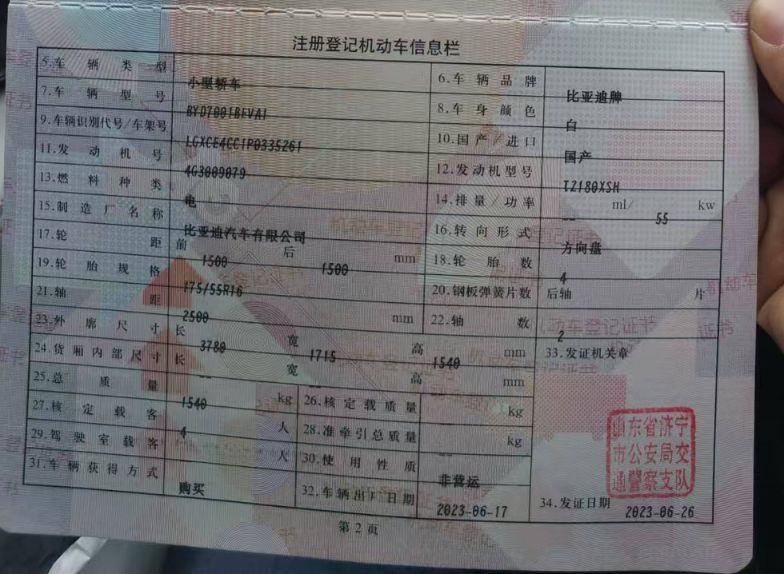 注册登记机动车信息栏
5.车辆类型 小型轿车 6.车辆品牌 比亚迪牌
7.车辆型号 BYD7001BEVA1 8.车身颜色 白
9.车辆识别代号/车架号 LGXCE4CC1P0335261 10.国产/进口 国产
11.发动机号 4G3009079 12.发动机型号 TZ180XSH
13.燃料种类 电 14.排量/功率 -- ml/ 55 kw
15.制造厂名称 比亚迪汽车有限公司 16.转向形式 方向盘
17.轮距 前 1500 后 1500 mm 18.轮胎数 4
19.轮胎规格 175/55R16 20.钢板弹簧片数 后轴 -- 片
21.轴距 2500 mm 22.轴数 2
23.外廓尺寸 长 3780 宽 1715 高 1540 mm 33.发证机关章
24.货厢内部尺寸 长 -- 宽 -- 高 -- mm
25.总质量 1540 kg 26.核定载质量 -- kg
27.核定载客 4 人 28.准牵引总质量 -- kg
29.驾驶室载客 -- 人 30.使用性质 非营运
31.车辆获得方式 购买 32.车辆出厂日期 2023-06-17 34.发证日期 2023-06-26
山东省济宁
市公安局交
通警察支队
第2页